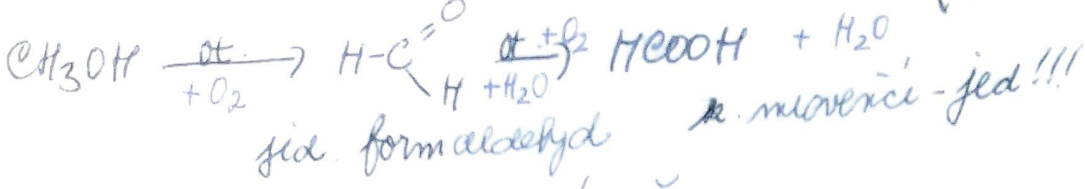 CH3OH ot. + O2 → H-C=O H ot. + O2 + H2O → HCOOH + H2O
jed formaldehyd k. mravenčí - jed!!!